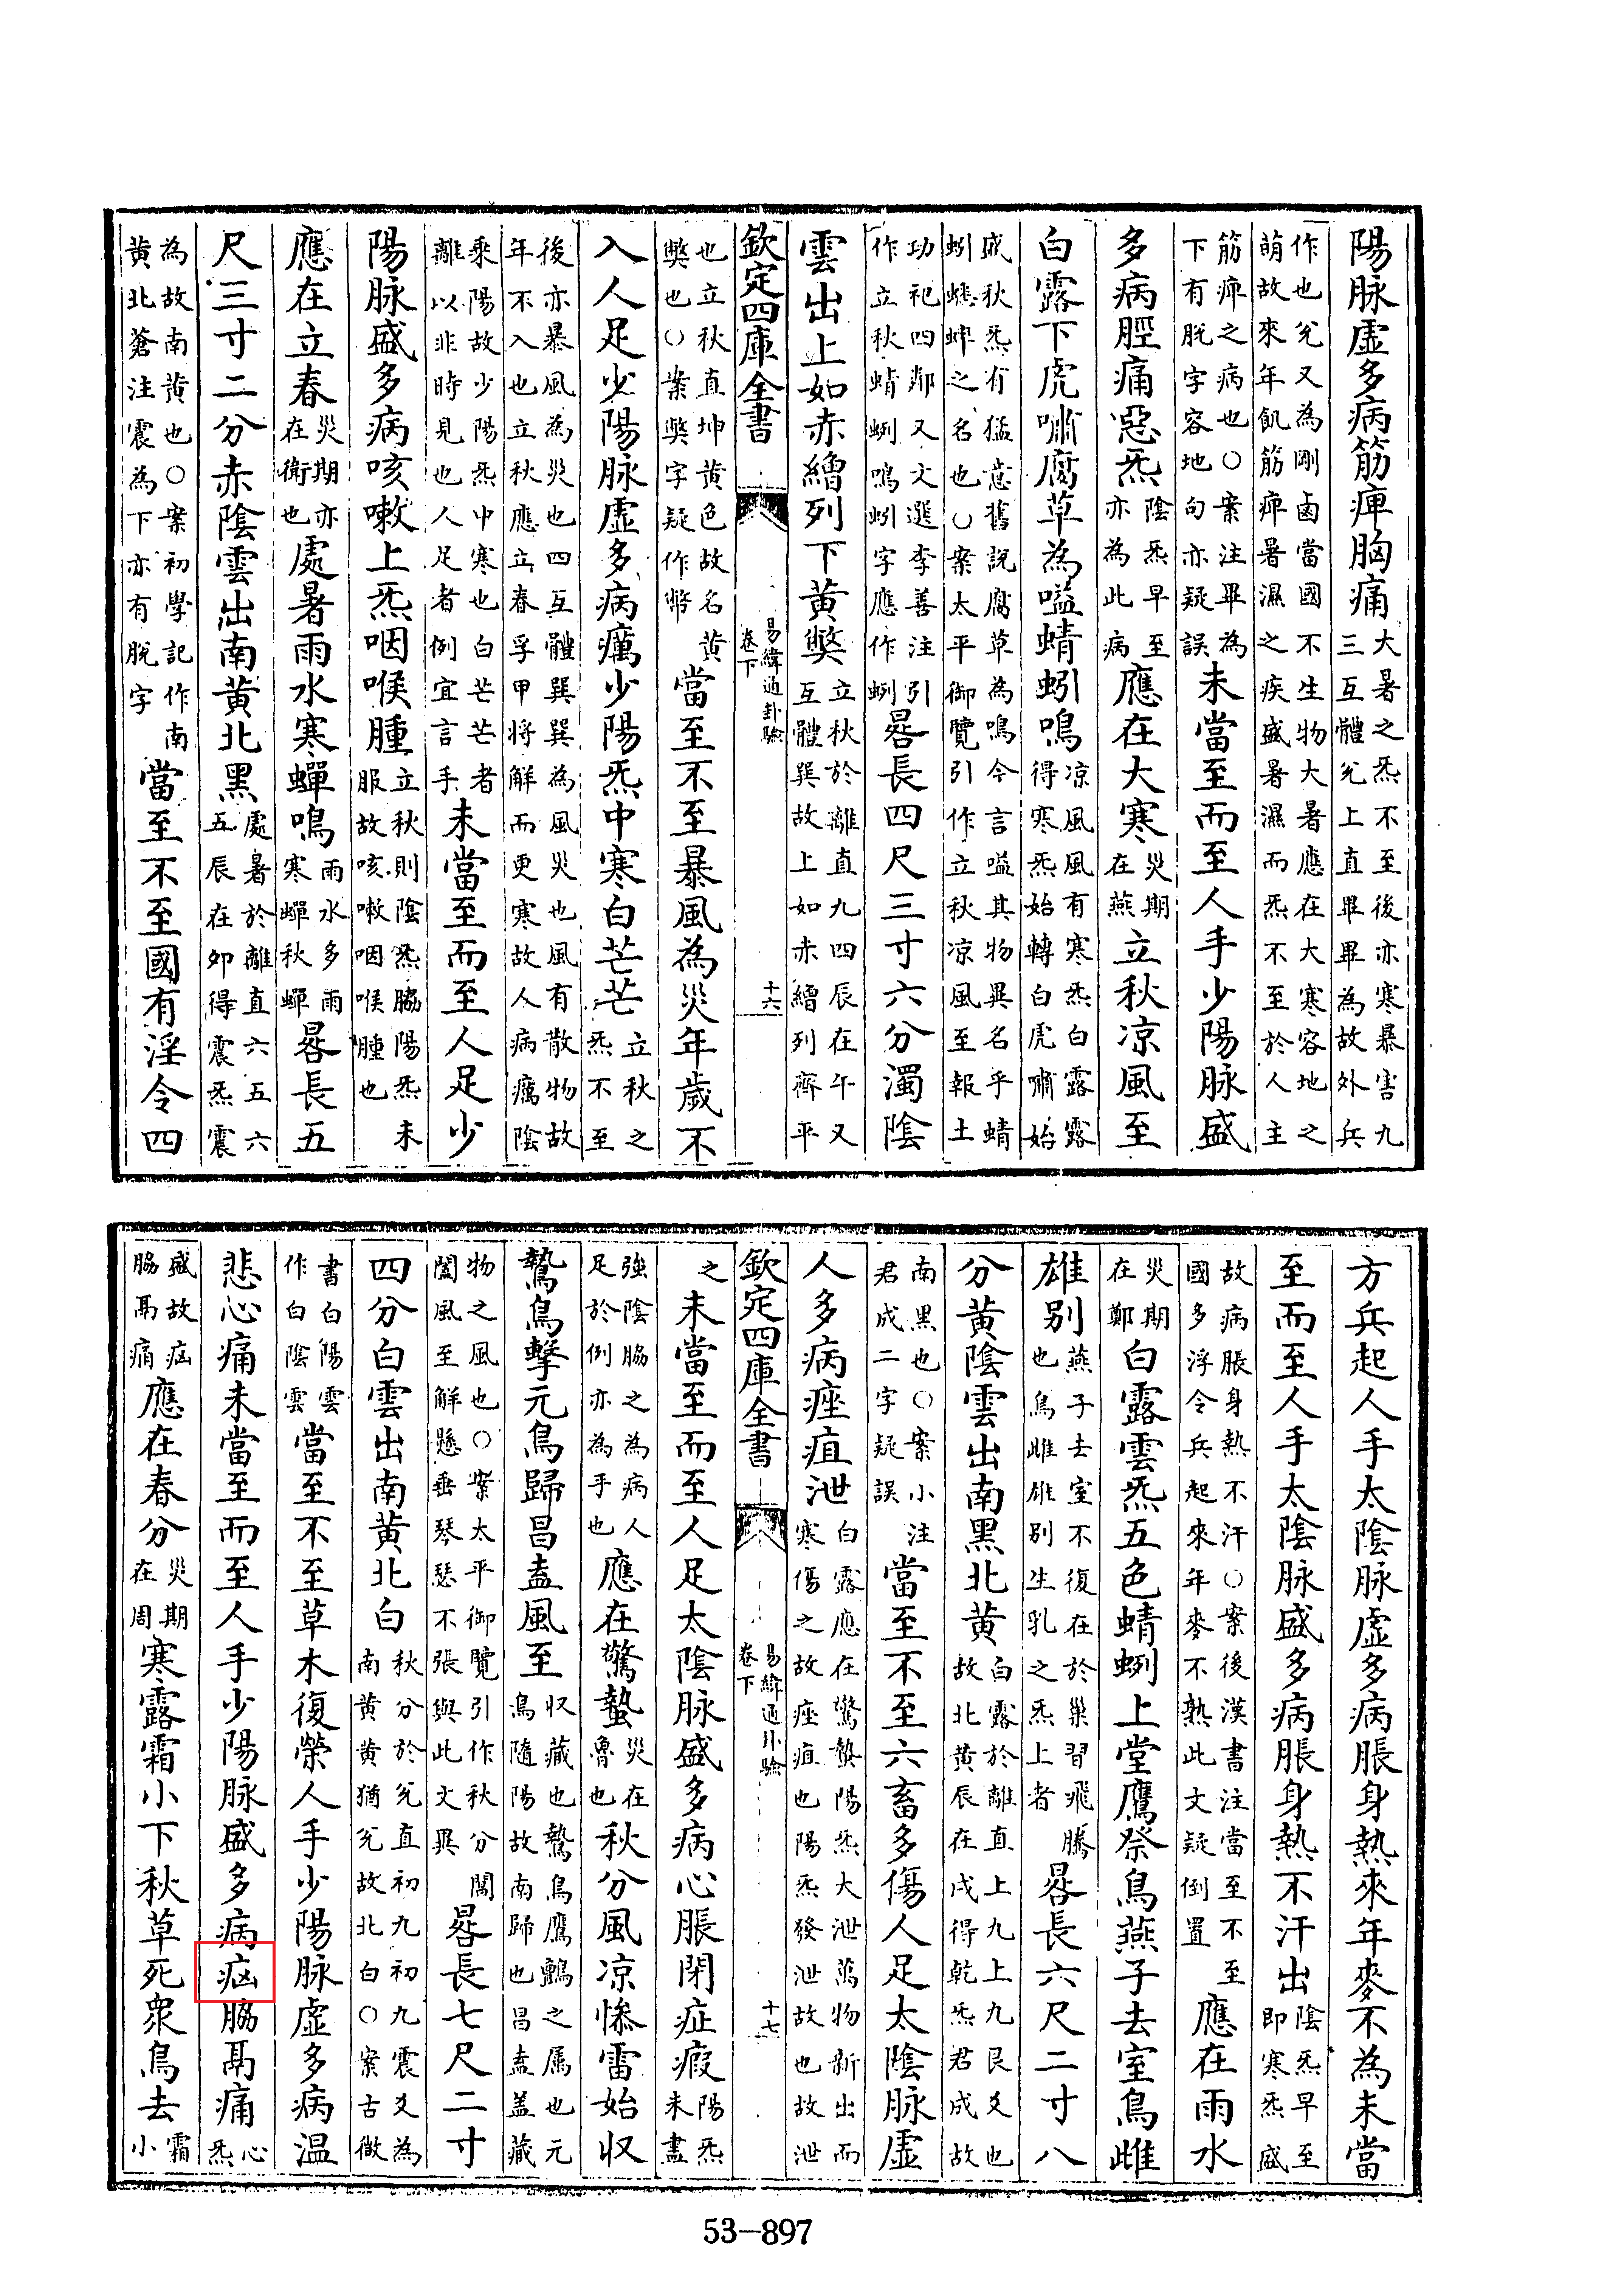 陽脉虛多病筋痺胸痛大暑之炁不至後亦寒暴害九三互體兊上直畢畢為故外兵
作也兊又為剛鹵當國不生物大暑應在大寒容地之萌故來年飢筋痺暑濕之疾盛暑濕而炁不至於人主
筋痺之病也○案注畢為下有脫字容地句亦疑誤未當至而至人手少陽脉盛
多病脛痛惡炁陰炁早至亦為此病應在大寒災期在燕立秋凉風至
白露下虎嘯腐草為嗌蜻蚓鳴凉風風有寒炁白露露得寒炁始轉白虎嘯始
盛秋炁有猛意舊說腐草為鳴今言嗌其物異名乎蜻蚓蟋蟀之名也○案太平御覽引作立秋凉風至報土
功祀四鄰又文選李善注引作立秋蜻蛚鳴蚓字應作蛚晷長四尺三寸六分濁陰
雲出上如赤繒列下黄獘立秋於離直九四辰在午又互體巽故上如赤繒列齊平
欽定四庫全書 易緯通卦驗 卷下 十六
也立秋直坤黄色故名黄獘也○案獘字疑作幣當至不至暴風為災年歲不
入人足少陽脉虛多病癘少陽炁中寒白芒芒立秋之炁不至
後亦暴風為災也四互體巽巽為風災也風有散物故年不入也立秋應立春孚甲将解而更寒故人病癘陰
乘陽故少陽炁中寒也白芒芒者離以非時見也人足者例宜言手未當至而至人足少
陽脉盛多病咳嗽上炁咽喉腫立秋則陰炁脇陽炁未服故咳嗽咽喉腫也
應在立春災期亦在衛也處暑雨水寒蟬鳴雨水多雨寒蟬秋蟬晷長五
尺三寸二分赤陰雲出南黄北黑處暑於離直六五六五辰在卯得震炁震
為故南黄也○案初學記作南黄北蒼注震為下亦有脫字當至不至國有淫令四
方兵起人手太陰脉虛多病脹身熱來年麥不為未當
至而至人手太陰脉盛多病脹身熱不汗出陰炁早至即寒炁盛
故病脹身熱不汗○案後漢書注當至不至國多浮令兵起來年麥不熟此文疑倒置應在雨水
災期在鄭白露雲炁五色蜻蛚上堂鷹祭鳥燕子去室鳥雌
雄别燕子去室不復在於巢習飛騰也鳥雌雄别生乳之炁上者晷長六尺二寸八
分黄陰雲出南黑北黄白露於離直上九上九艮爻也故北黄辰在戌得乾炁君成故
南黑也○案小注君成二字疑誤當至不至六畜多傷人足太陰脉虛
人多病痤疽泄白露應在驚蟄陽炁大泄萬物新出而寒傷之故痤疽也陽炁發泄故也故泄
欽定四庫全書 易緯通卦驗 卷下 十七
之未當至而至人足太陰脉盛多病心脹閉症瘕陽炁未盡
強陰脇之為病人足於例亦為手也應在驚蟄災在魯也秋分風凉慘雷始収
鷙鳥擊元鳥歸昌盍風至収藏也鷙鳥鷹鸇之属也元鳥隨陽故南歸也昌盍盖藏
物之風也○案太平御覽引作秋分閶闔風至解懸垂琴瑟不張與此文異晷長七尺二寸
四分白雲出南黄北白秋分於兊直初九初九震爻為南黄黄猶兊故北白○案古微
書白陽雲作白陰雲當至不至草木復榮人手少陽脉虛多病温
悲心痛未當至而至人手少陽脉盛多病㾄脇鬲痛心炁
盛故㾄脇鬲痛應在春分災期在周寒露霜小下秋草死衆鳥去霜小
53—897